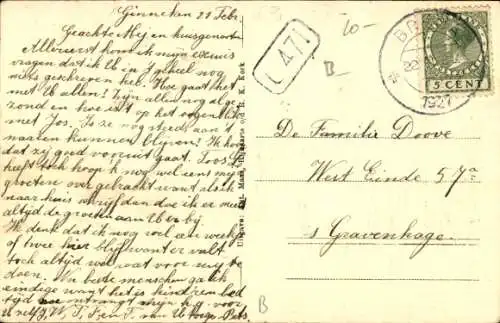 Ginneken 22 Febr
Geachte Mej en huisgenooten
Allereerst kom ik mijn excuus
vragen dat ik U in 't geheel nog
niets geschreven heb. Hoe gaat het
met U allen? Zijn allen nog al ge
zond en hoe is 't op het oogenblik
met Jos. Is ze nog steeds aan 't
kuren blijven? Ik hoop
dat zij goed vooruit gaat. Loos
heeft toch hoop ik nog wel eens mijn
groeten over gebracht want als ik
naar huis schrijf dan doe ik er mee
altijd de groeten aan U er bij
Ik denk dat ik nog wel een week
of twee hier blijf want er valt
toch altijd wel wat voor mij te
doen. Nu beste menschen ga ik
eindigen want het is kinderen bed
tijd ontvangt mijn h.g. voor
U zelf, J, W, T,
L 47
20-
B-
BR
22
1927
NEDERLAND
5 CENT
De Familie Doove
West Einde 57a
s Gravenhage.
B